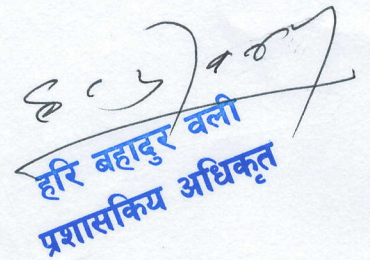 हरि बहादुर वली
प्रशासकिय अधिकृत